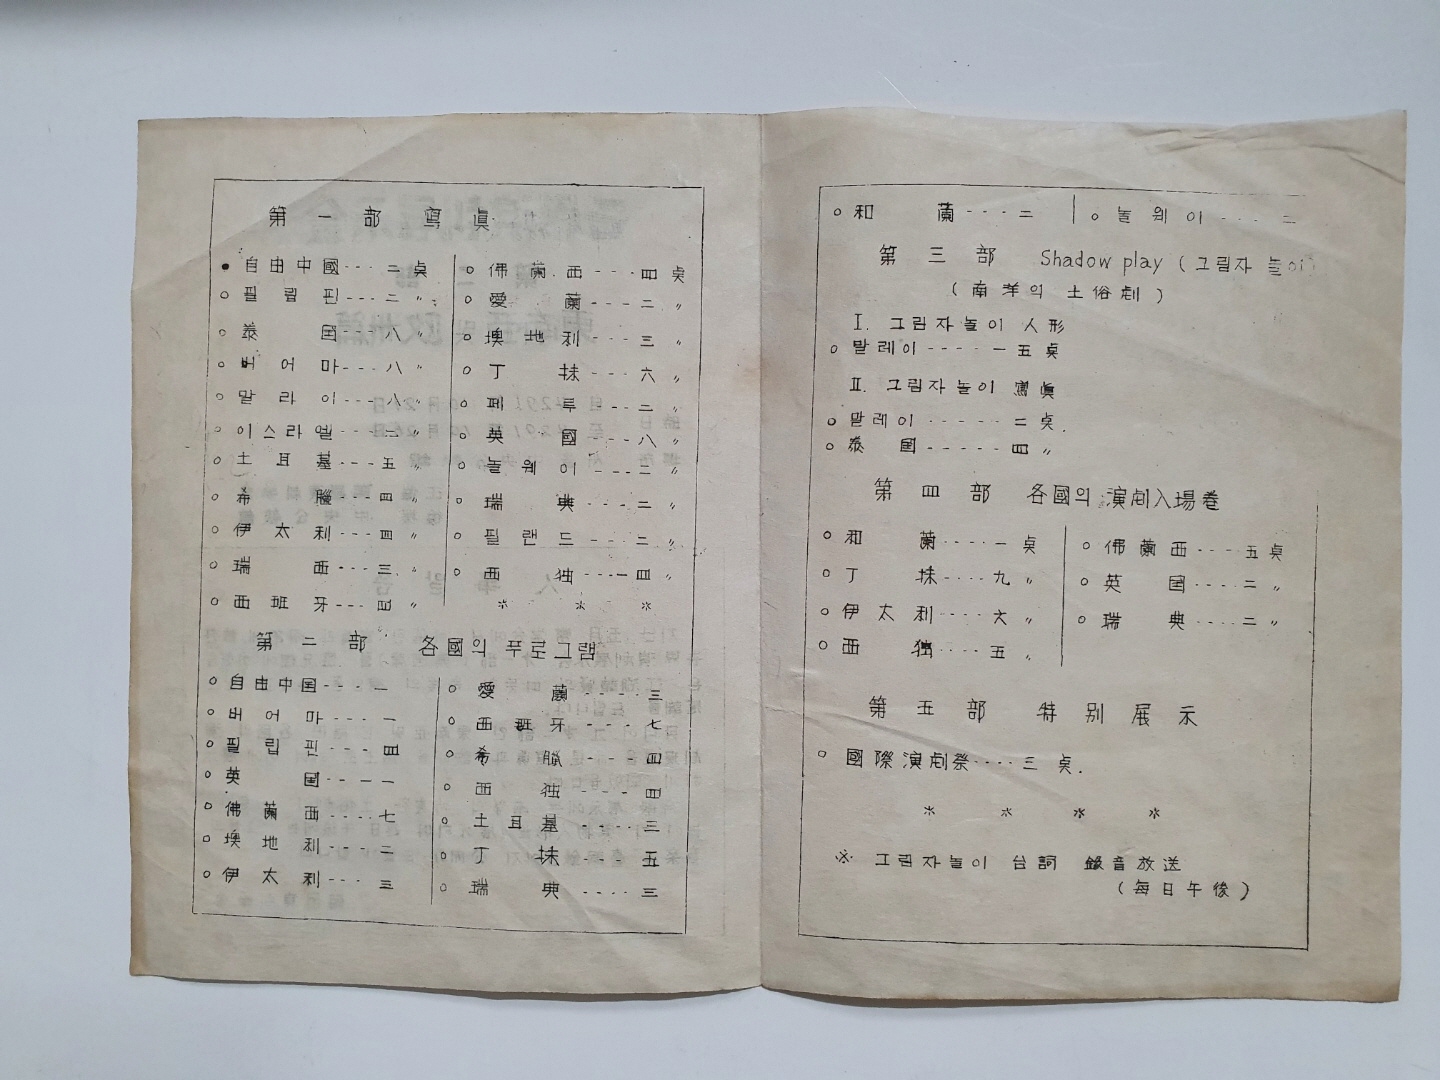 第一部 寫眞
自由中國---二奌
필립핀---二〃
泰国---八〃
버어마---八〃
말라이---八〃
이스라엘---二〃
土耳基---五〃
希臘---四〃
伊太利---四〃
瑞西---三〃
西班牙---四〃
佛蘭西---四奌
愛蘭---二〃
墺地利---三〃
丁抹---六〃
페루---二〃
英國---八〃
놀웨이---二〃
瑞典---二〃
필랜드---二〃
西独---一四〃
* * *
第二部 各國의 푸로그램
自由中国---一
버어마---一
필립핀---四
英国---一
佛蘭西---七
墺地利---二
伊太利---三
愛蘭----三
西班牙----七
希臘----四
西独----四
土耳基----三
丁抹----五
瑞典----三
和蘭----二
놀웨이----二
第三部 Shadow play (그림자 놀이)
(南洋의 土俗劇)
I. 그림자놀이 人形
말레이-----一五奌
II. 그림자놀이 寫眞
말레이-----二奌.
泰国-----四〃
第四部 各國의 演劇入場巻
和蘭----一奌
丁抹----九〃
伊太利----六〃
西独----五〃
佛蘭西----五奌
英国----二〃
瑞典----二〃
第五部 特別展示
國際演劇祭----三奌.
* * * *
※ 그림자놀이 台詞 錄音放送
(每日午後)